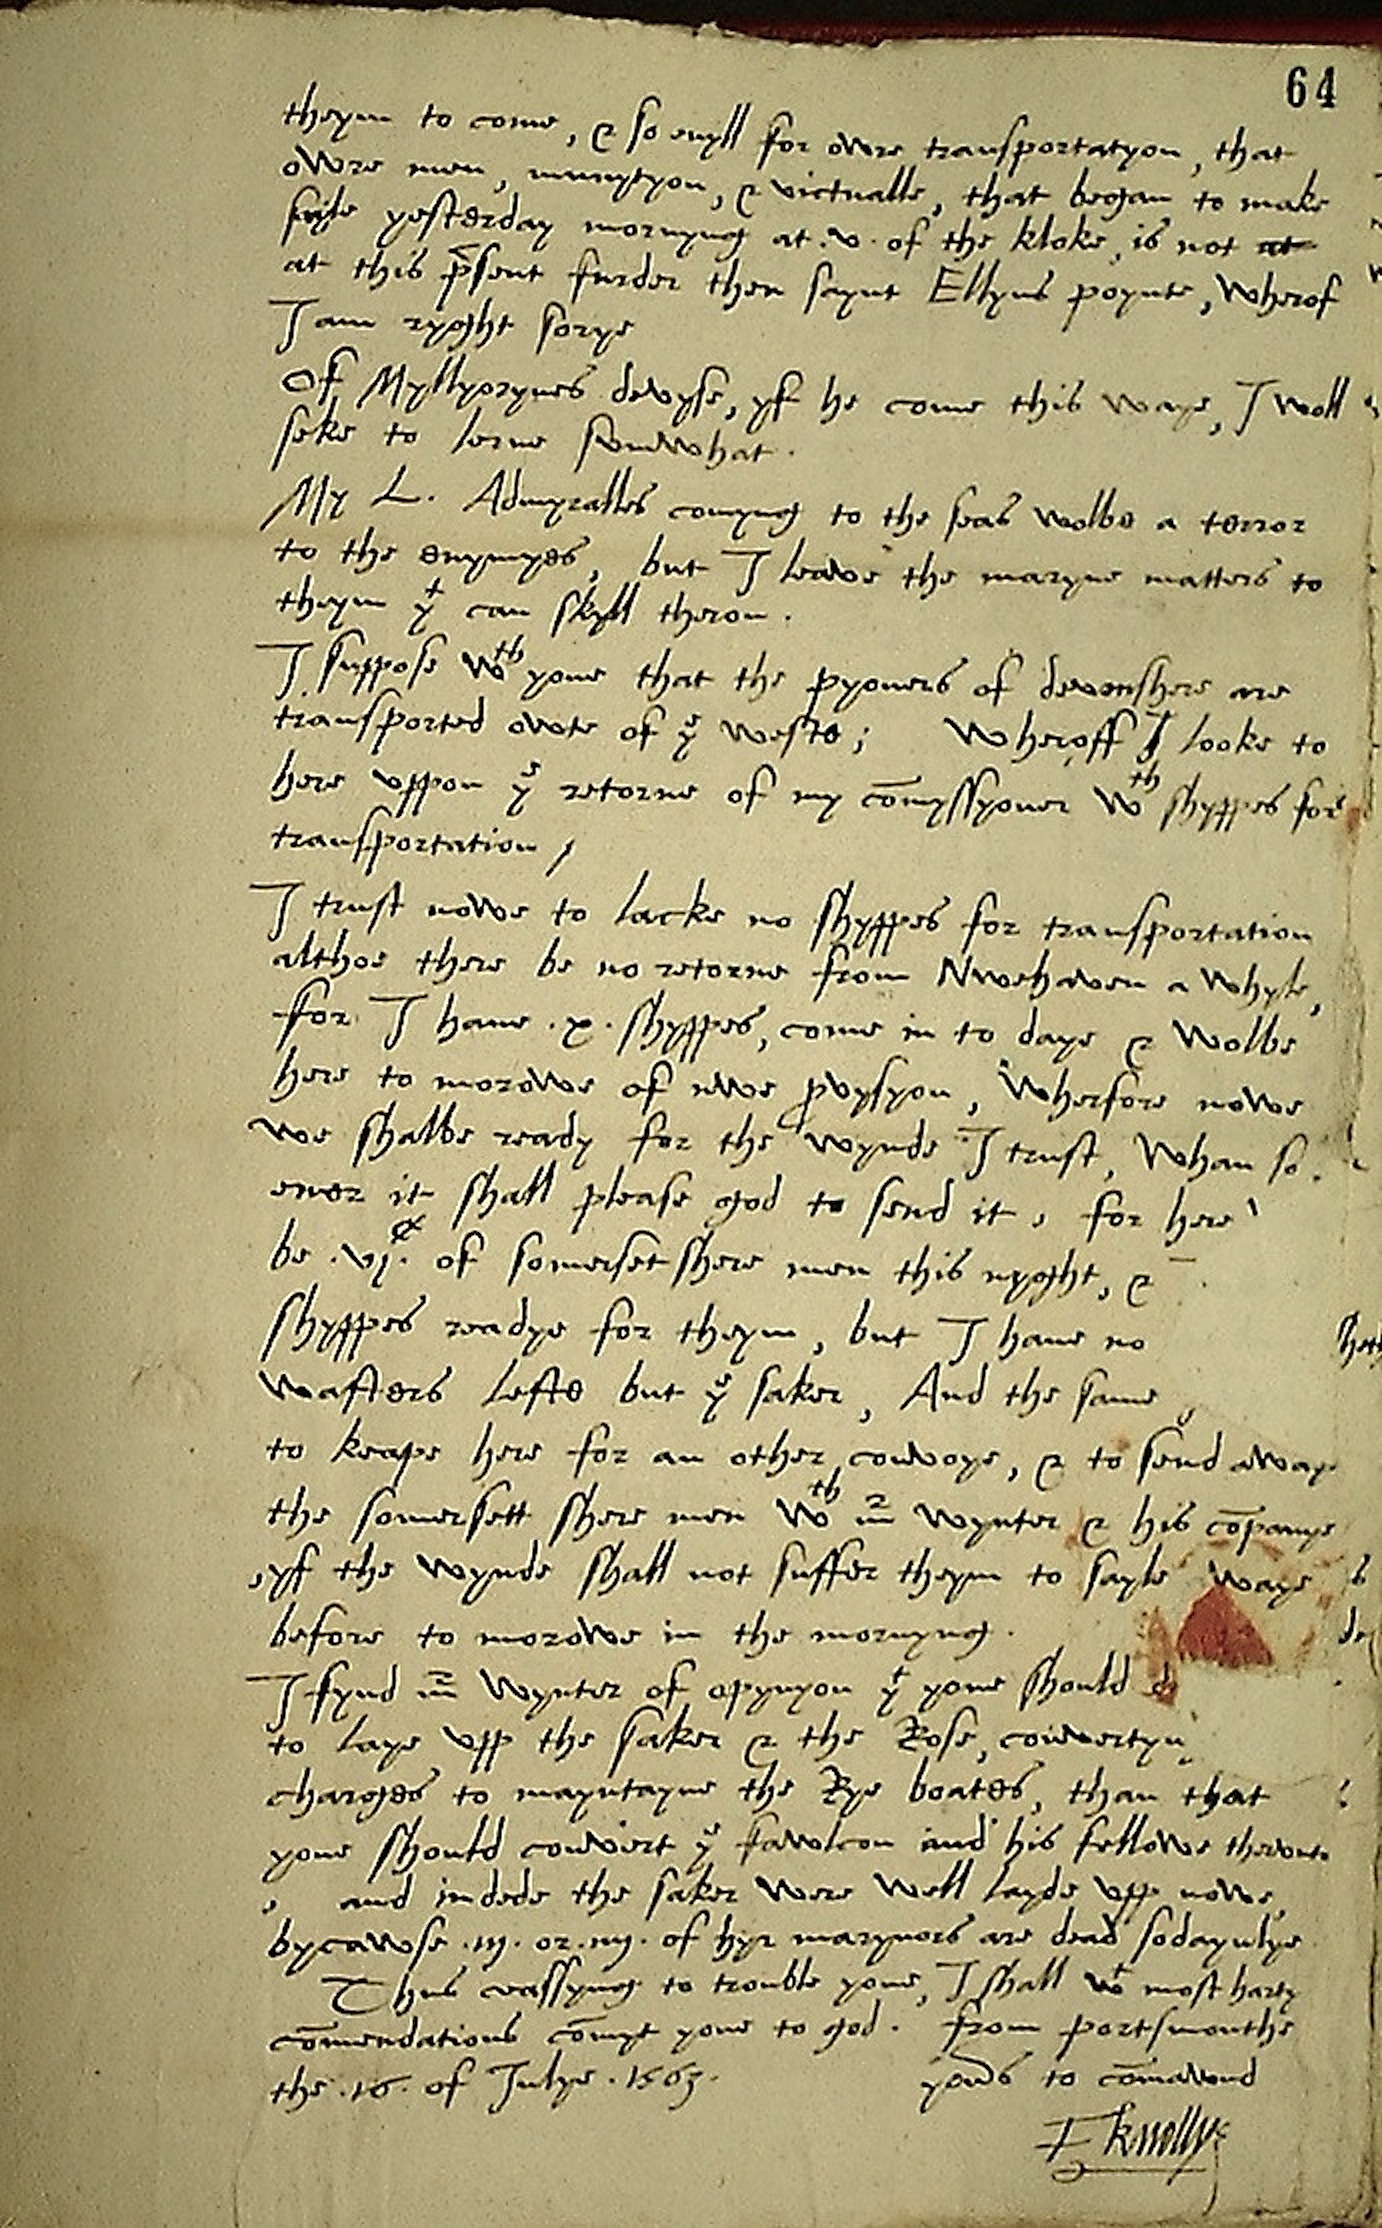 64
theym to come, & so evyll for owre transportatyon, that
owre men, munytyon, & victualls, that began to make
sayle yesterday mornyng at .v. of the kloke, is not at
at this p̄sent furder then saynt Ellyns poynte, wherof
I am ryght sorye
Of Myllyorynes devyse, yf he come this waye, I woll
seke to lerne sumwhat.
My L. Admyralles comyng to the seas wolbe a terror
to the enymyes, but I leave the maryne matters to
theym yt can skyll theron.
I suppose wth youe that the pyoners of devonshere are
transported owte of ye weste; wheroff I looke to
here uppon ye retorne of my com̄yssyoner wth shyppes for
transportation /
I trust nowe to lacke no shyppes for transportation
althoe there be no retorne from Nwehaven a whyle,
for I have .x. shyppes, come in to daye & wolbe
here to morowe of nwe pvysyon, wherfore nowe
we shalbe ready for the wynde I trust, whan so
ever it shall please god to send it, for here
be .vjc. of somersetshere men this nyght, &
shyppes readye for theym, but I have no
wafters lefte but ye saker, And the same
to keape here for an other convoye, & to send away
the somersett shere men wth mr wynter & his cōpanye
yf the wynde shall not suffer theym to sayle waye
before to morowe in the mornyng.
I fynd mr wynter of opynyon yt youe should
to laye upp the saker & the Rose, convertyn
charges to mayntayne the Rye boates, than that
youe should convert ye fawlcon and his fellowe therunto
, and indede the saker were well layde upp nowe,
bycawse .iij. or .iiij. of hyr marynors are dead sodaynlye
Thus ceassyng to trouble youe, I shall wt most harty
com̄endations com̄yt youe to god. from portsmouthe
the .16. of Julye .1563.
yours to com̄aund
F knollys